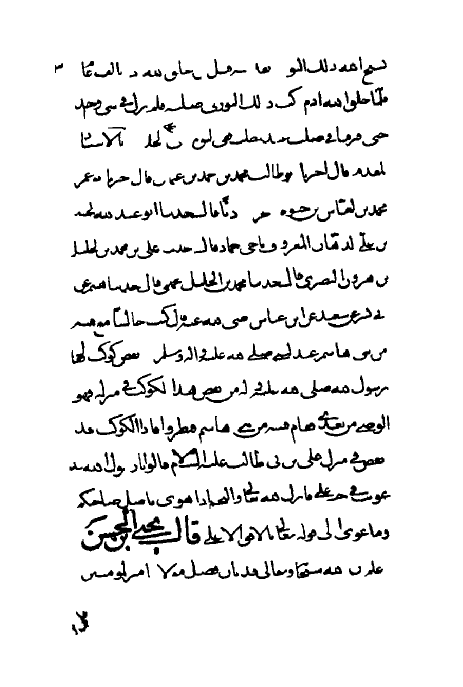 يسبح الله ذلك النور قبل يخلق الله بالف عام
فلما خلق الله ادم ركب ذلك النور في صلبه فلم يزل في شي وحد
حتى افترقنا في صلب عبد المطلب بالاسناد
المقدم قال اخبرنا ابو طالب محمد بن احمد بن عثمان قال اخبرنا ابو عمر
محمد بن العباس بن حيويه اذنا قال حدثنا ابو عبد الله
بن علي الدهقان المعروف باخي حماد قال حدثنا علي بن محمد بن الخليل
بن هرون البصري قال حدثنا محمد بن الخليل قال حدثنا هشيم عن
ابي بشر عن سعيد عن ابن عباس رضي الله عنه قال كنت جالسا مع فتية
من بني هاشم عند النبي صلى الله عليه واله وسلم انقض كوكب فقال
رسول الله صلى الله عليه واله من انقض هذا الكوكب في منزله فهو
الوصي من بعدي فقام فتية من بني هاشم فنظروا فاذا الكوكب قد
انقض في منزل علي بن ابي طالب عليه السلام قالوا يا رسول الله قد
غويت في حب علي فانزل الله تعالى والنجم اذا هوى ما ضل صاحبكم
وما غوى الى قوله تعالى بالافق الاعلى قال يحيى بن الحسن
اعلم ان الله سبحانه وتعالى قد ابان فضل مولانا امير المومنين